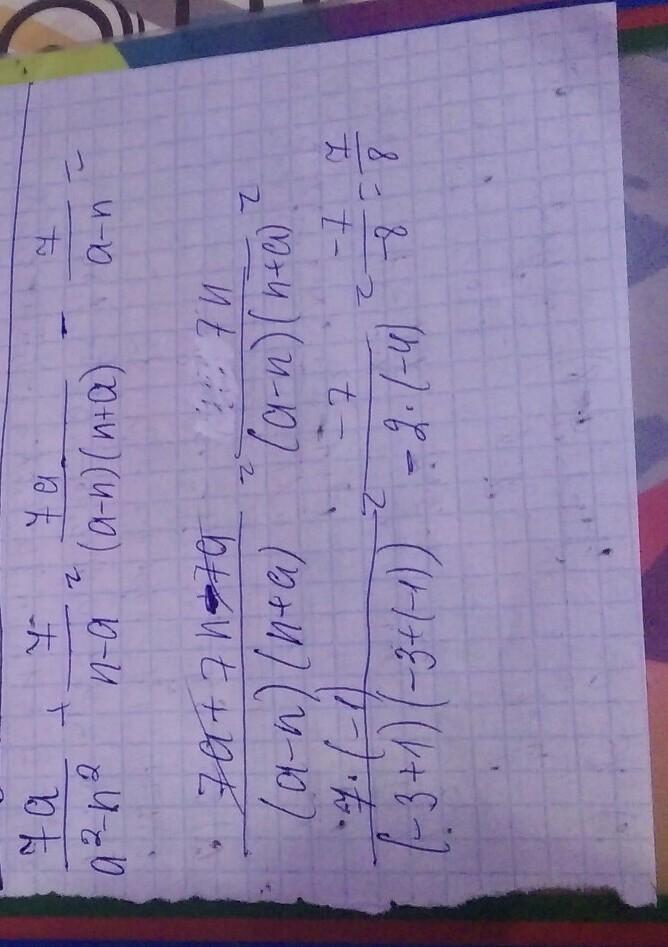 7a/(a²-n²) + 7/(n-a) = 7a/((a-n)(n+a)) - 7/(a-n) =
(7a+7n-7a)/((a-n)(n+a)) = 7n/((a-n)(n+a)) =
-7·(-1)/((-3+1)(-3+(-1))) = -7/(-2·(-4)) = -7/-8 = 7/8